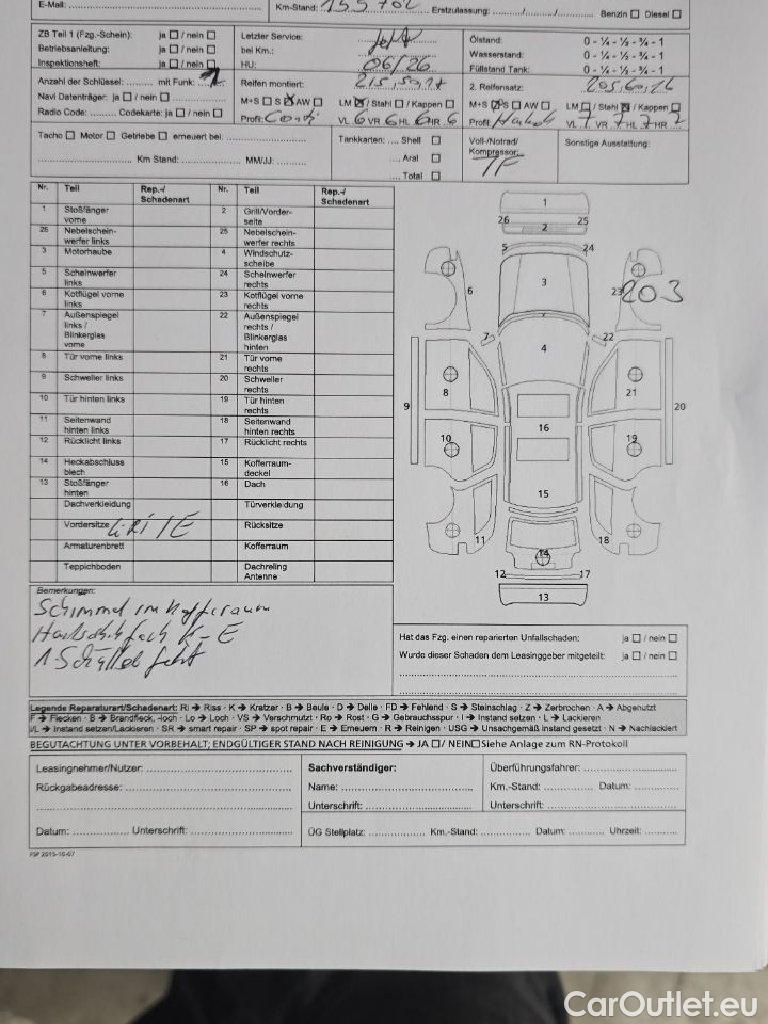 E-Mail:
Km-Stand: 155702 Erstzulassung: / / Benzin ☐ Diesel ☐
ZB Teil 1 (Fzg.-Schein): ja ☐ / nein ☐
Betriebsanleitung: ja ☐ / nein ☐
Inspektionsheft: ja ☐ / nein ☐
Letzter Service:
bei Km.:
HU: 06/26
Ölstand: 0 - ¼ - ½ - ¾ - 1
Wasserstand: 0 - ¼ - ½ - ¾ - 1
Füllstand Tank: 0 - ¼ - ½ - ¾ - 1
Anzahl der Schlüssel: mit Funk: 1
Navi Datenträger: ja ☐ / nein ☐
Radio Code: Codekarte: ja ☐ / nein ☐
Reifen montiert: 215,50,17
M+S ☐ S ☒ AW ☐ LM ☒ / Stahl ☐ / Kappen ☐
Profil: Conti VL 6 VR 6 HL 6 HR 6
2. Reifensatz: 205,60,16
M+S ☒ S ☐ AW ☐ LM ☐ / Stahl ☒ / Kappen ☐
Profil: VL 7 VR 7 HL 7 HR 7
Tacho ☐ Motor ☐ Getriebe ☐ erneuert bei:
Km Stand: MM/JJ:
Tankkarten: .... Shell ☐
.... Aral ☐
.... Total ☐
Voll-/Notrad/
Kompressor:
Sonstige Ausstattung:
Nr. Teil Rep.-/ Schadenart Nr. Teil Rep.-/ Schadenart
1 Stoßfänger vorne 2 Grill/Vorderseite
26 Nebelscheinwerfer links 25 Nebelscheinwerfer rechts
3 Motorhaube 4 Windschutzscheibe
5 Scheinwerfer links 24 Scheinwerfer rechts
6 Kotflügel vorne links 23 Kotflügel vorne rechts
7 Außenspiegel links / Blinkerglas vorne 22 Außenspiegel rechts / Blinkerglas hinten
8 Tür vorne links 21 Tür vorne rechts
9 Schweller links 20 Schweller rechts
10 Tür hinten links 19 Tür hinten rechts
11 Seitenwand hinten links 18 Seitenwand hinten rechts
12 Rücklicht links 17 Rücklicht rechts
14 Heckabschlussblech 15 Kofferraumdeckel
13 Stoßfänger hinten 16 Dach
Dachverkleidung Türverkleidung
Vordersitze Rücksitze
Armaturenbrett Kofferraum
Teppichboden Dachreling Antenne
1
26 25
2
5 24
3
6 23 203
7 22
4
8 21
9 20
10 16 19
15
11 18
14
12 17
13
Bemerkungen:
Schimmel im Kofferraum
Handschuhfach K-E
1 Schlüssel fehlt
Hat das Fzg. einen reparierten Unfallschaden: ja ☐ / nein ☐
Wurde dieser Schaden dem Leasinggeber mitgeteilt: ja ☐ / nein ☐
Legende Reparaturart/Schadenart: Ri → Riss · K → Kratzer · B → Beule · D → Delle · FD → Fehlend · S → Steinschlag · Z → Zerbrochen · A → Abgenutzt
F → Flecken · B → Brandfleck, -loch · Lo → Loch · VS → Verschmutzt · Ro → Rost · G → Gebrauchsspur · I → Instand setzen · L → Lackieren
I/L → Instand setzen/Lackieren · SR → smart repair · SP → spot repair · E → Erneuern · R → Reinigen · USG → Unsachgemäß instand gesetzt · N → Nachlackiert
BEGUTACHTUNG UNTER VORBEHALT; ENDGÜLTIGER STAND NACH REINIGUNG → JA ☐ / NEIN ☐ Siehe Anlage zum RN-Protokoll
Leasingnehmer/Nutzer:
Rückgabeadresse:
Datum: Unterschrift:
Sachverständiger:
Name:
Unterschrift:
Überführungsfahrer:
Km.-Stand: Datum:
Unterschrift:
ÜG Stellplatz: Km.-Stand: Datum: Uhrzeit:
CarOutlet.eu